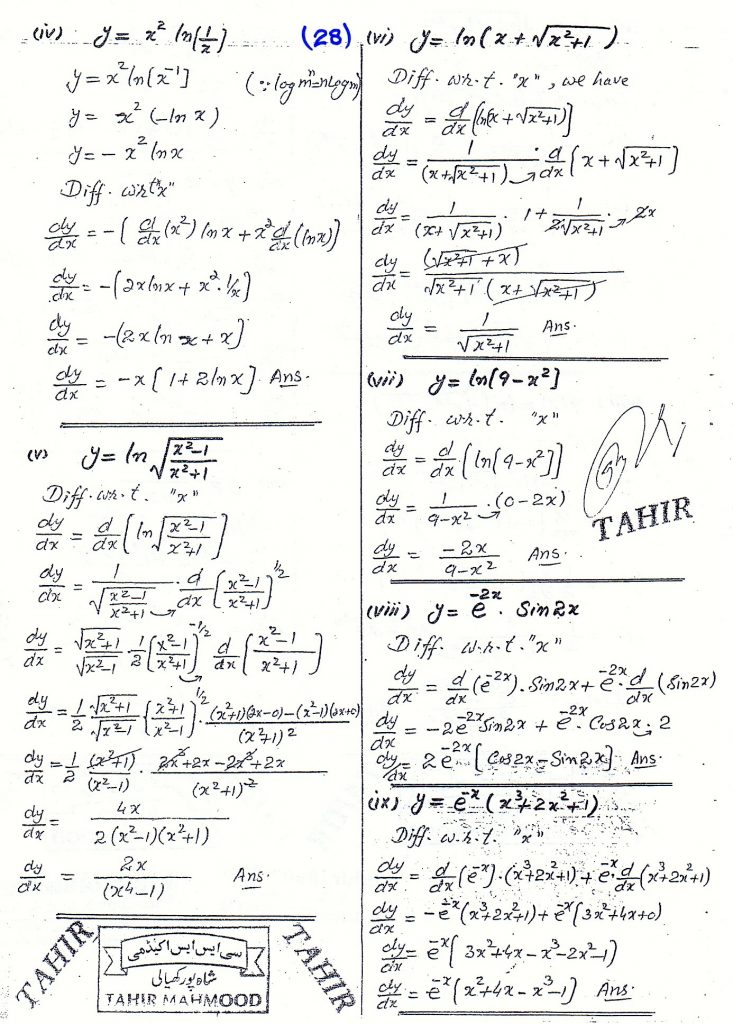 (28)
(iv) y = x² ln(1/x)
y = x² ln[x⁻¹] (∵ log mⁿ = n log m)
y = x² (-ln x)
y = - x² ln x
Diff. w.r.t "x"
dy/dx = -[ d/dx (x²) ln x + x² d/dx (ln x)]
dy/dx = -[2x ln x + x² · 1/x]
dy/dx = -[2x ln x + x]
dy/dx = -x[1 + 2 ln x] Ans.
(v) y = ln √((x²-1)/(x²+1))
Diff. w.r.t. "x"
dy/dx = d/dx [ln √((x²-1)/(x²+1))]
dy/dx = 1/√((x²-1)/(x²+1)) · d/dx [(x²-1)/(x²+1)]^½
dy/dx = √(x²+1)/√(x²-1) · 1/2 [(x²-1)/(x²+1)]^-½ d/dx [(x²-1)/(x²+1)]
dy/dx = 1/2 √(x²+1)/√(x²-1) {(x²+1)/(x²-1)}^½ · ((x²+1)(2x-0)-(x²-1)(2x+0))/(x²+1)²
dy/dx = 1/2 (x²+1)/(x²-1) · (2x³+2x-2x³+2x)/(x²+1)²
dy/dx = 4x/(2(x²-1)(x²+1))
dy/dx = 2x/(x⁴-1) Ans.
TAHIR
سی ایس ایس اکیڈمی
شاہ پور کھیالی
TAHIR MAHMOOD
TAHIR
(vi) y = ln(x + √(x²+1))
Diff. w.r.t. "x", we have
dy/dx = d/dx [ln(x + √(x²+1)]
dy/dx = 1/(x+√(x²+1)) · d/dx [x + √(x²+1)]
dy/dx = 1/(x+√(x²+1)) · 1 + 1/(2√(x²+1)) · 2x
dy/dx = (√(x²+1) + x)/(√(x²+1) (x+√(x²+1)))
dy/dx = 1/√(x²+1) Ans.
(vii) y = ln[9-x²]
Diff. w.r.t. "x"
dy/dx = d/dx [ln[9-x²]]
dy/dx = 1/(9-x²) · (0-2x)
dy/dx = -2x/(9-x²) Ans.
TAHIR
(viii) y = e⁻²ˣ · Sin2x
Diff. w.r.t. "x"
dy/dx = d/dx (e⁻²ˣ). Sin2x + e⁻²ˣ · d/dx (Sin2x)
dy/dx = -2e⁻²ˣ Sin2x + e⁻²ˣ · Cos2x · 2
dy/dx = 2e⁻²ˣ [Cos2x - Sin2x] Ans.
(ix) y = e⁻ˣ (x³+2x²+1)
Diff. w.r.t. "x"
dy/dx = d/dx (e⁻ˣ) · (x³+2x²+1) + e⁻ˣ · d/dx (x³+2x²+1)
dy/dx = -e⁻ˣ (x³+2x²+1) + e⁻ˣ [3x²+4x+0]
dy/dx = e⁻ˣ [3x²+4x-x³-2x²-1)
dy/dx = e⁻ˣ [x²+4x-x³-1] Ans.